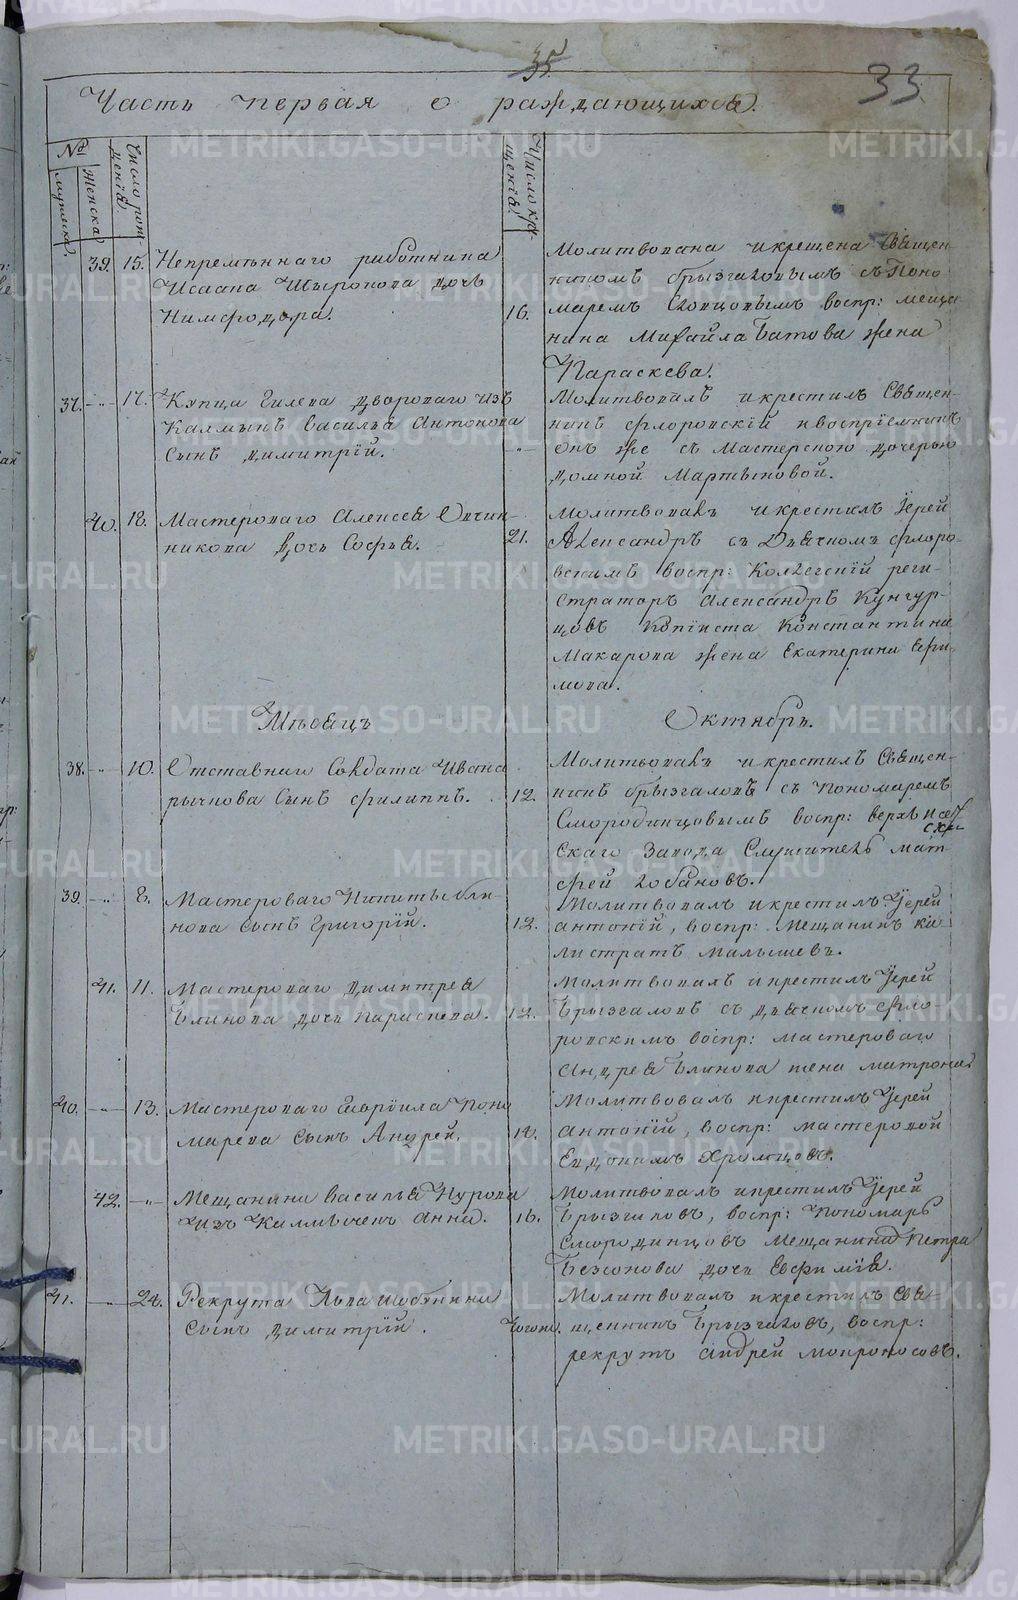 35
33
Часть первая о раждающихся.
№
мужеска
женска
Число рождения
Число крещения
39. 15. Непременнаго работника
Исаака Широкова дочь
Нимфодора.
16.
Молитвована и крещена Священ-
никомъ Брызгаловымъ съ Поно
маремъ воспр: меща
нина Михайла Батова жена
Параскева.
37. -"- 17. Купца Гилева двороваго изъ
Калмыкъ Василья Антонова
Сынъ Димитрій.
-"-
Молитвовалъ и крестилъ Священ-
никъ Флоровскій и воспріемникъ
онъ же съ Мастерскою дочерью
Домной Мартыновой.
40. 18. Мастероваго Алексея Овчин-
никова Дочь Софья.
21.
Молитвовалъ и крестилъ Іерей
Александръ съ Дьячкомъ Флоро-
вскимъ воспр: Коллегскій реги-
страторъ Александръ Кунгур-
цовъ Копіиста Константина
Макарова жена Екатерина Ефи-
мова.
Месяцъ Октябрь.
38. -"- 10. Отставнаго Солдата Ивана
рычкова Сынъ Филиппъ.
12.
Молитвовалъ и крестилъ Священ-
никъ Брызгаловъ съ пономаремъ
Смородинцовымъ воспр: верхъ исет
скаго Завода Служитель мат
фей лобановъ.
39. -"- 8. Мастероваго Никиты бли-
нова сынъ Григорій.
12.
Молитвовалъ и крестилъ Іерей
антоній, воспр: мещанинъ ка
листратъ малышевъ.
41. 11. Мастероваго Димитрея
Блинова дочь параскева.
12.
Молитвовалъ и крестилъ Іерей
Брызгаловъ съ дьячкомъ Фло
ровскимъ воспр: мастероваго
Андрея Блинова жена матрона
40. -"- 13. Мастероваго Гавріила Поно
марева сынъ Андрей.
14.
Молитвовалъ и крестилъ Іерей
Антоній, воспр: мастеровой
Евдокимъ Хромцовъ.
42. -"- Мещанина Василья Нурова
изъ Калмычекъ Анна.
16.
Молитвовалъ и крестилъ Іерей
Брызгаловъ, воспр: Пономарь
Смородинцовъ мещанина Петра
Безсонова дочь Евфимія.
41. -"- 24. Рекрута Льва
сынъ Димитрій.
Молитвовалъ и крестилъ свя-
щенникъ Брызгаловъ, воспр:
рекрутъ андрей мокроносовъ.
METRIKI.GASO-URAL.RU